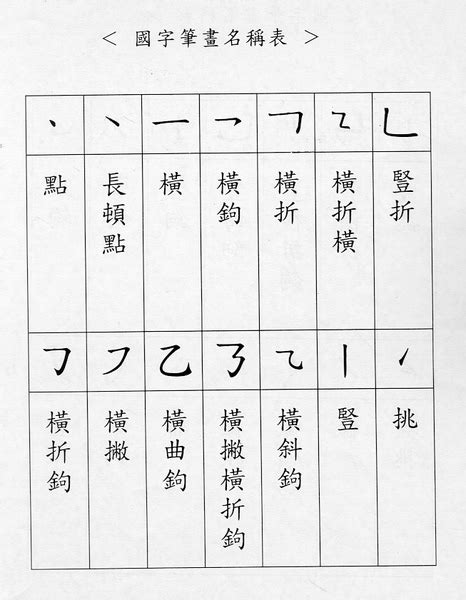 < 國字筆畫名稱表 >
㇔ ㇏ ㇐ ㇖ ㇕ ㇅ ㇗
點 長頓點 橫 橫鉤 橫折 橫折橫 豎折
㇆ ㇇ ㇠ ㇡ ㇈ ㇑ ㇀
橫折鉤 橫撇 橫曲鉤 橫撇橫折鉤 橫斜鉤 豎 挑